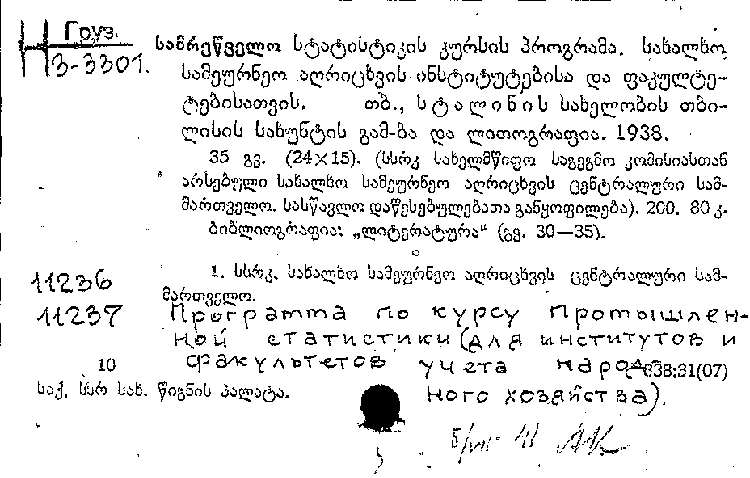 Груз.
3-3301.
სამრეწველო სტატისტიკის კურსის პროგრამა. სახალხო
სამეურნეო აღრიცხვის ინსტიტუტებისა და ფაკულტე-
ტებისათვის. თბ., სტალინის სახელობის თბი-
ლისის სახუნტის გამ-ბა და ლითოგრაფია. 1938.
35 გვ. (24×15). (სსრკ სახელმწიფო საგეგმო კომისიასთან
არსებული სახალხო სამეურნეო აღრიცხვის ცენტრალური სამ-
მართველო. სასწავლო დაწესებულებათა განყოფილება). 200. 80 კ.
ბიბლიოგრაფია: „ლიტერატურა“ (გვ. 30—35).
1. სსრკ. სახალხო სამეურნეო აღრიცხვის ცენტრალური სამ-
მართველო.
11236
11237 Программа по курсу промышлен-
ной статистики (для институтов и
факультетов учета народ-
10 :31(07)
საქ. სსრ სახ. წიგნის პალატა.
ного хозяйства).